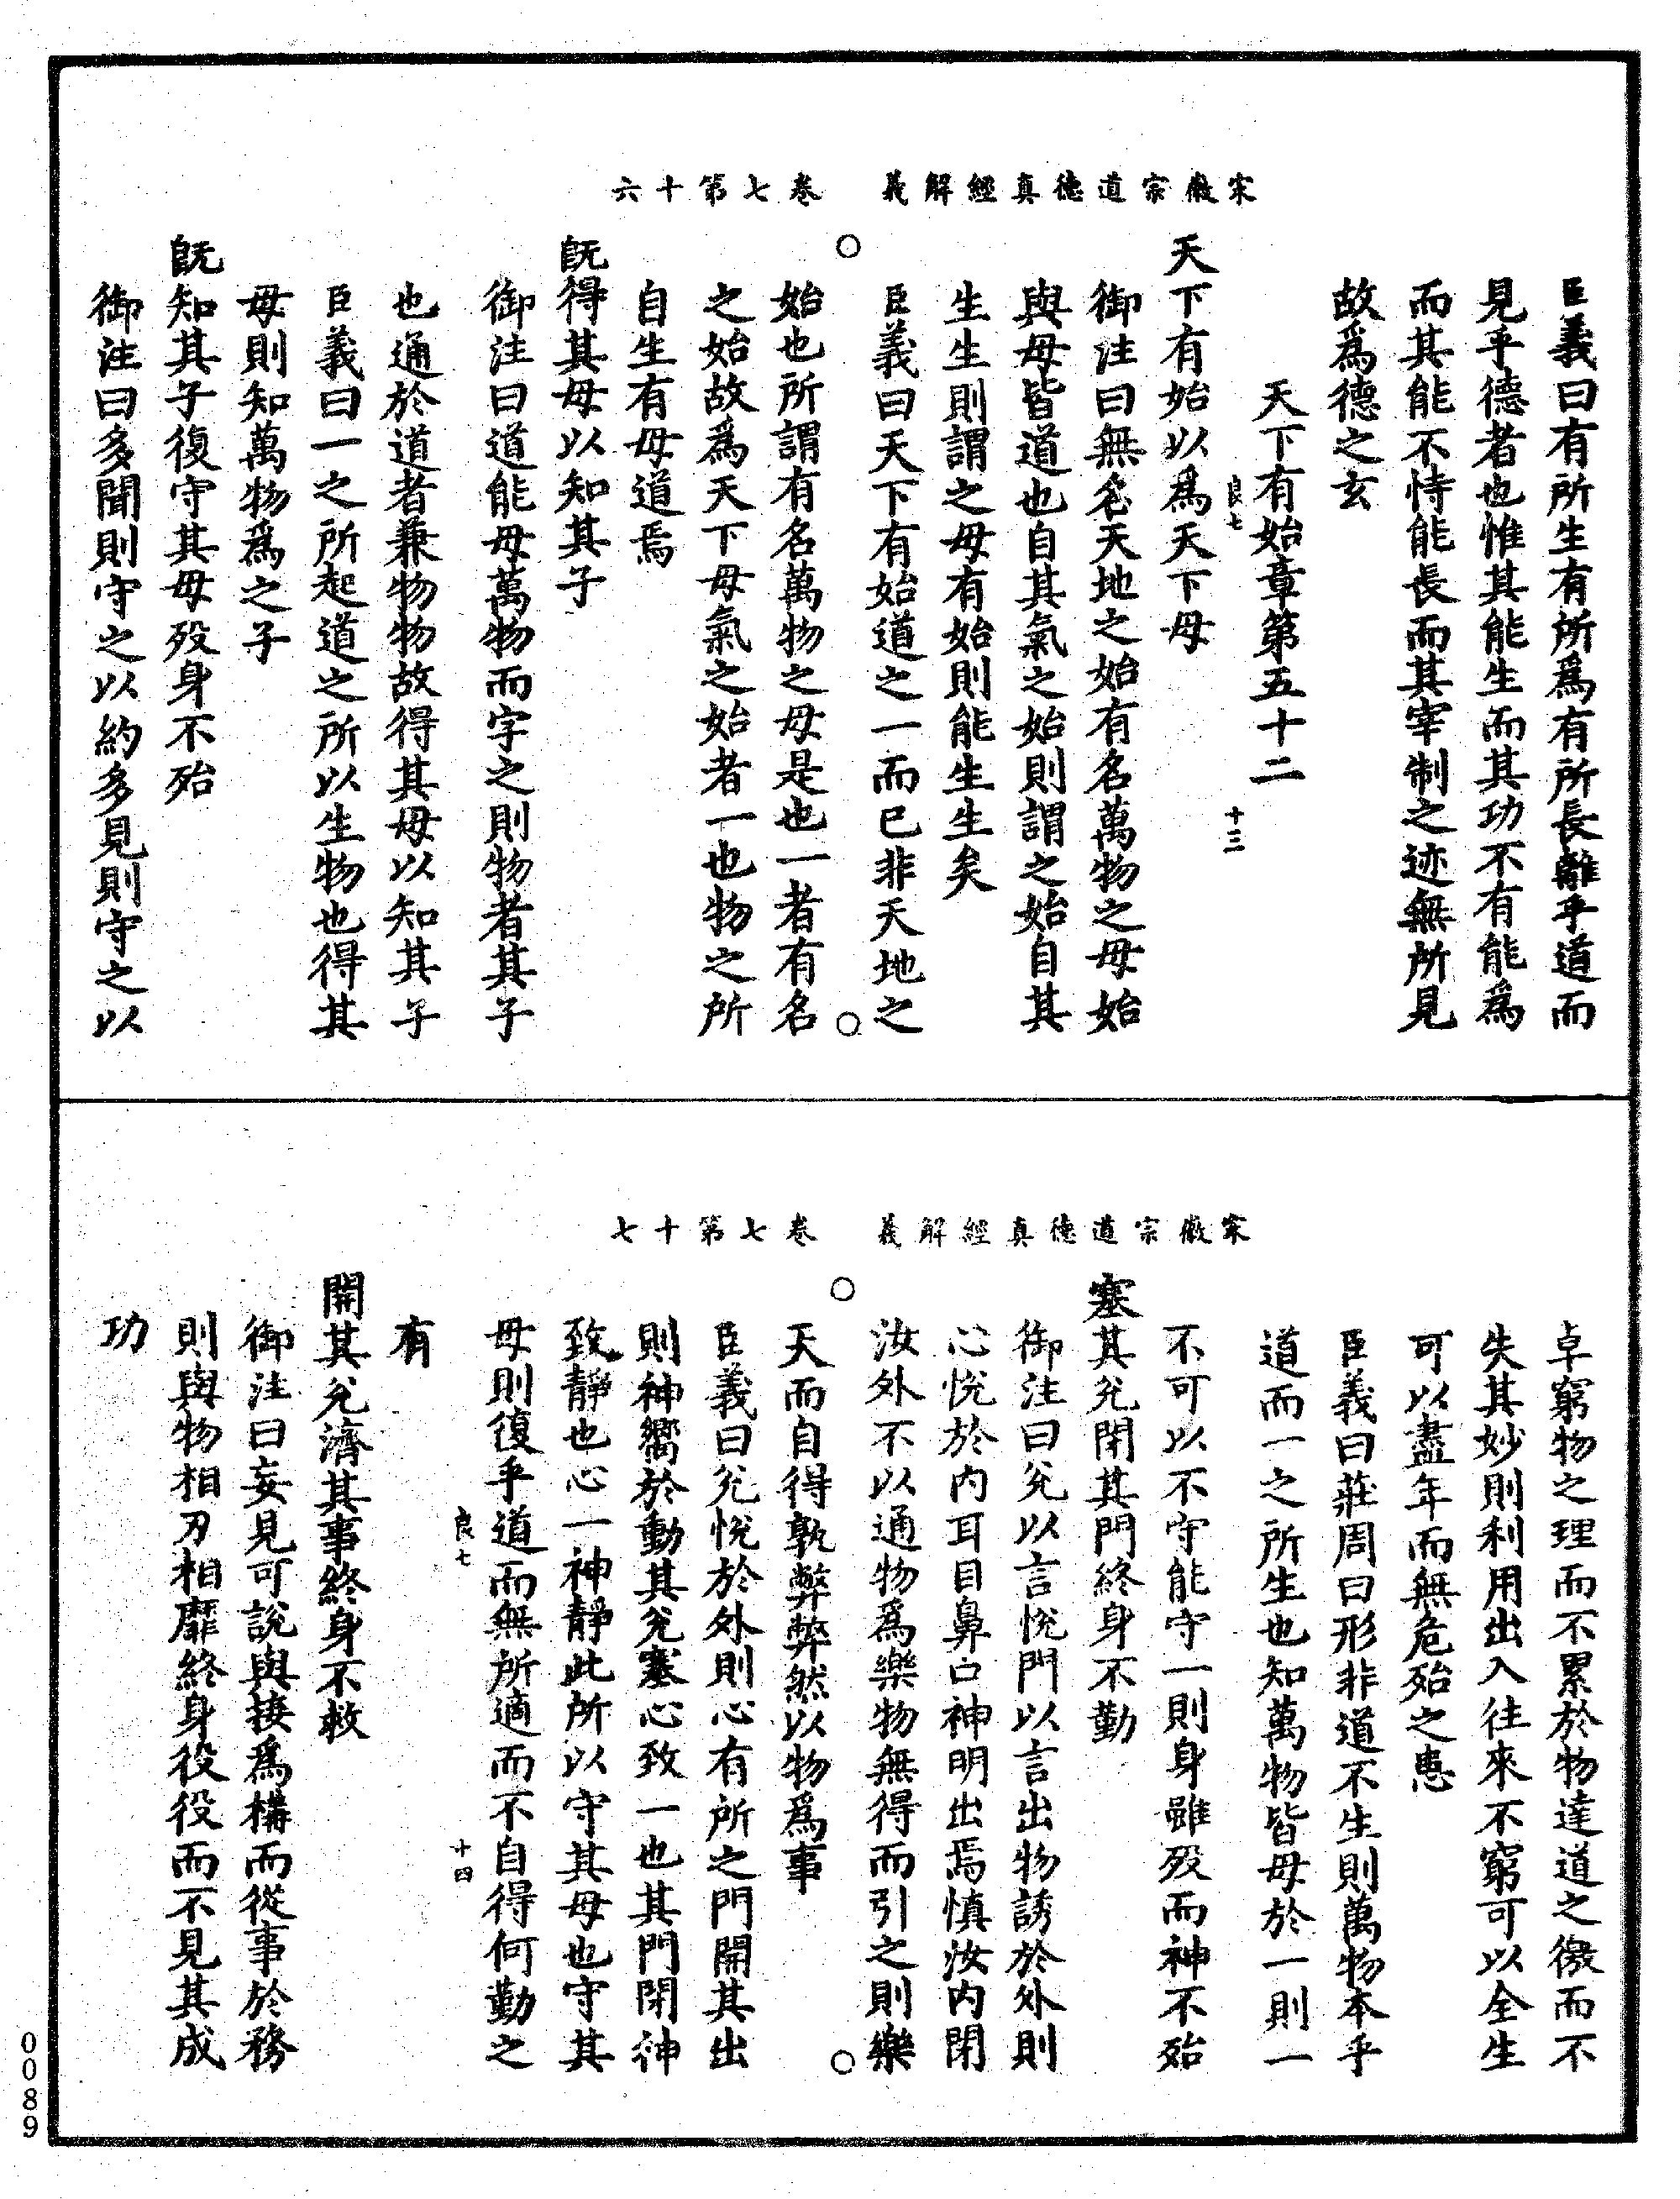 宋徽宗道德真經解義　卷七第十六
臣義曰有所生有所爲有所長離乎道而
見乎德者也惟其能生而其功不有能爲
而其能不恃能長而其宰制之迹無所見
故爲德之玄
天下有始章第五十二
良七　十三
天下有始以爲天下母
御注曰無名天地之始有名萬物之母始
與母皆道也自其氣之始則謂之始自其
生生則謂之母有始則能生生矣
臣義曰天下有始道之一而已非天地之
始也所謂有名萬物之母是也一者有名
之始故爲天下母氣之始者一也物之所
自生有母道焉
既得其母以知其子
御注曰道能母萬物而字之則物者其子
也通於道者兼物物故得其母以知其子
臣義曰一之所起道之所以生物也得其
母則知萬物爲之子
既知其子復守其母歿身不殆
御注曰多聞則守之以約多見則守之以
宋徽宗道德真經解義　卷七第十七
卓窮物之理而不累於物達道之徼而不
失其妙則利用出入往來不窮可以全生
可以盡年而無危殆之患
臣義曰莊周曰形非道不生則萬物本乎
道而一之所生也知萬物皆母於一則一
不可以不守能守一則身雖歿而神不殆
塞其兌閉其門終身不勤
御注曰兌以言悅門以言出物誘於外則
心悅於内耳目鼻口神明出焉慎汝内閉
汝外不以通物爲樂物無得而引之則樂
天而自得孰弊弊然以物爲事
臣義曰兌悅於外則心有所之門開其出
則神嚮於動其兌塞心致一也其門閉神
致靜也心一神靜此所以守其母也守其
良七　十四
母則復乎道而無所適而不自得何勤之
有
開其兌濟其事終身不救
御注曰妄見可說與接爲構而從事於務
則與物相刃相靡終身役役而不見其成
功
0089